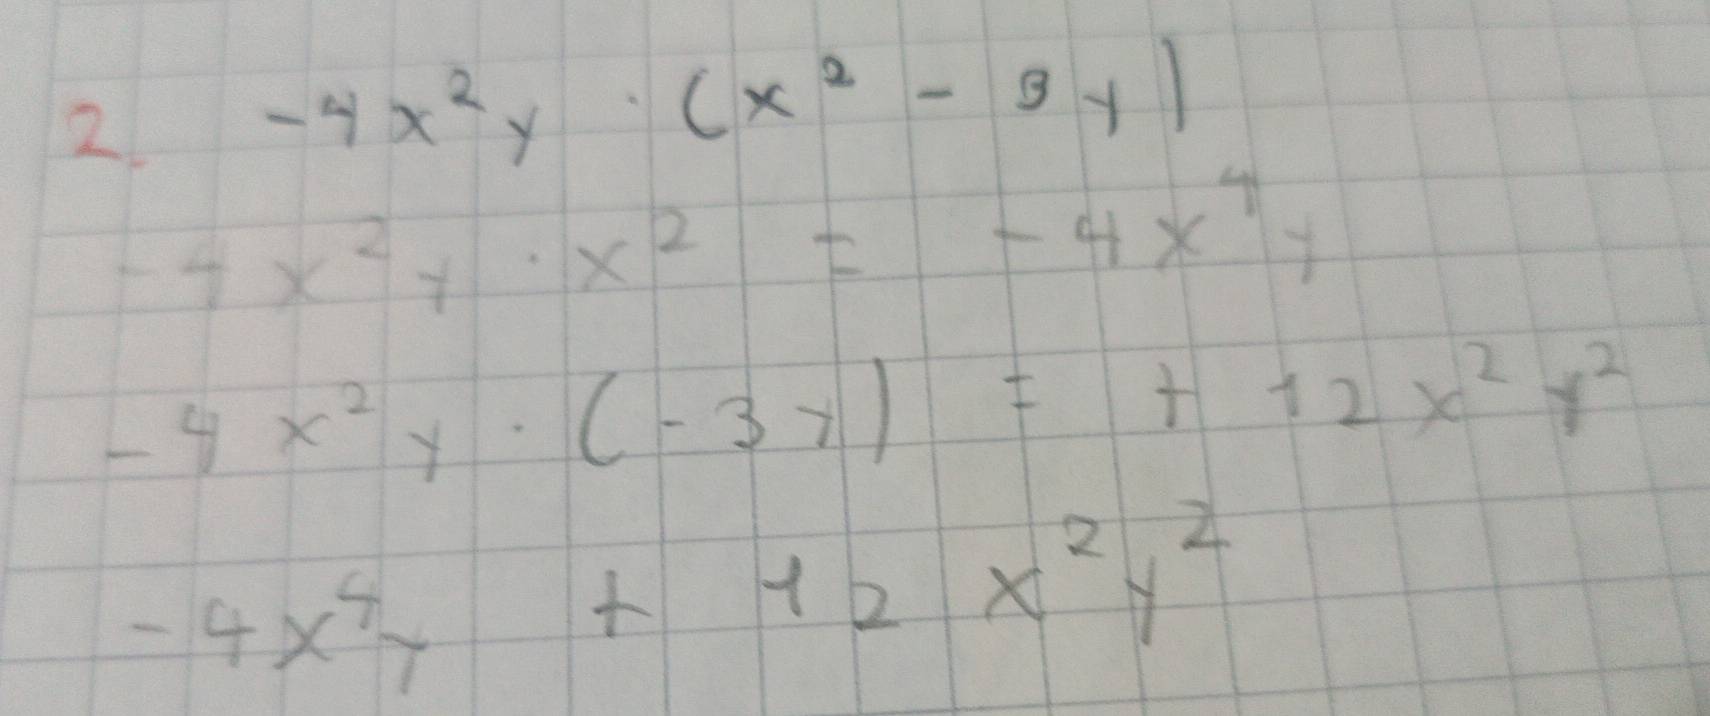 2. -4x²y · (x² - 3y)
-4x²y · x² = -4x⁴y
-4x²y · (-3y) = + 12x²y²
-4x⁴y + 12x²y²